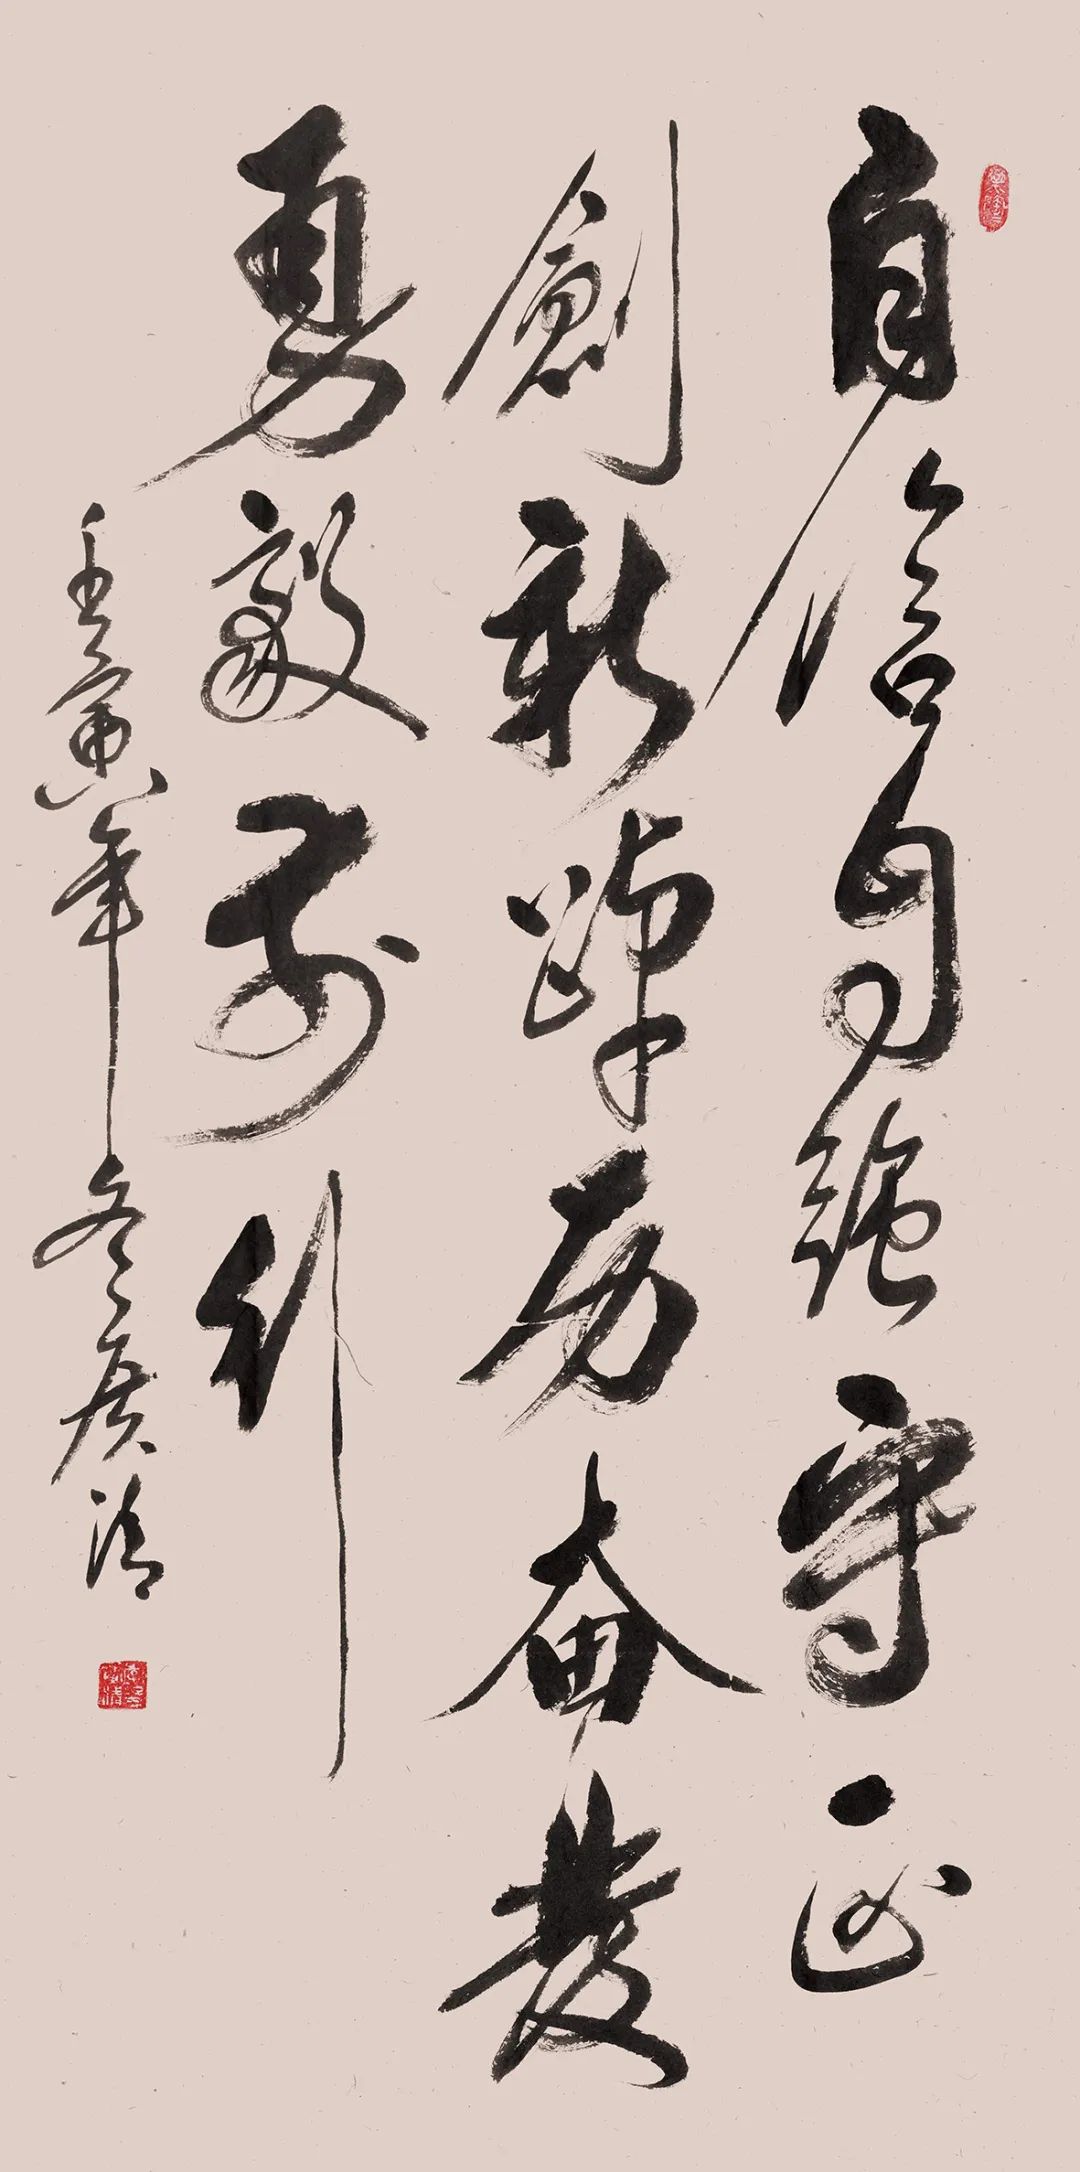 自信自强守正
創新踔厉奋發
勇毅前行
壬寅年冬居清